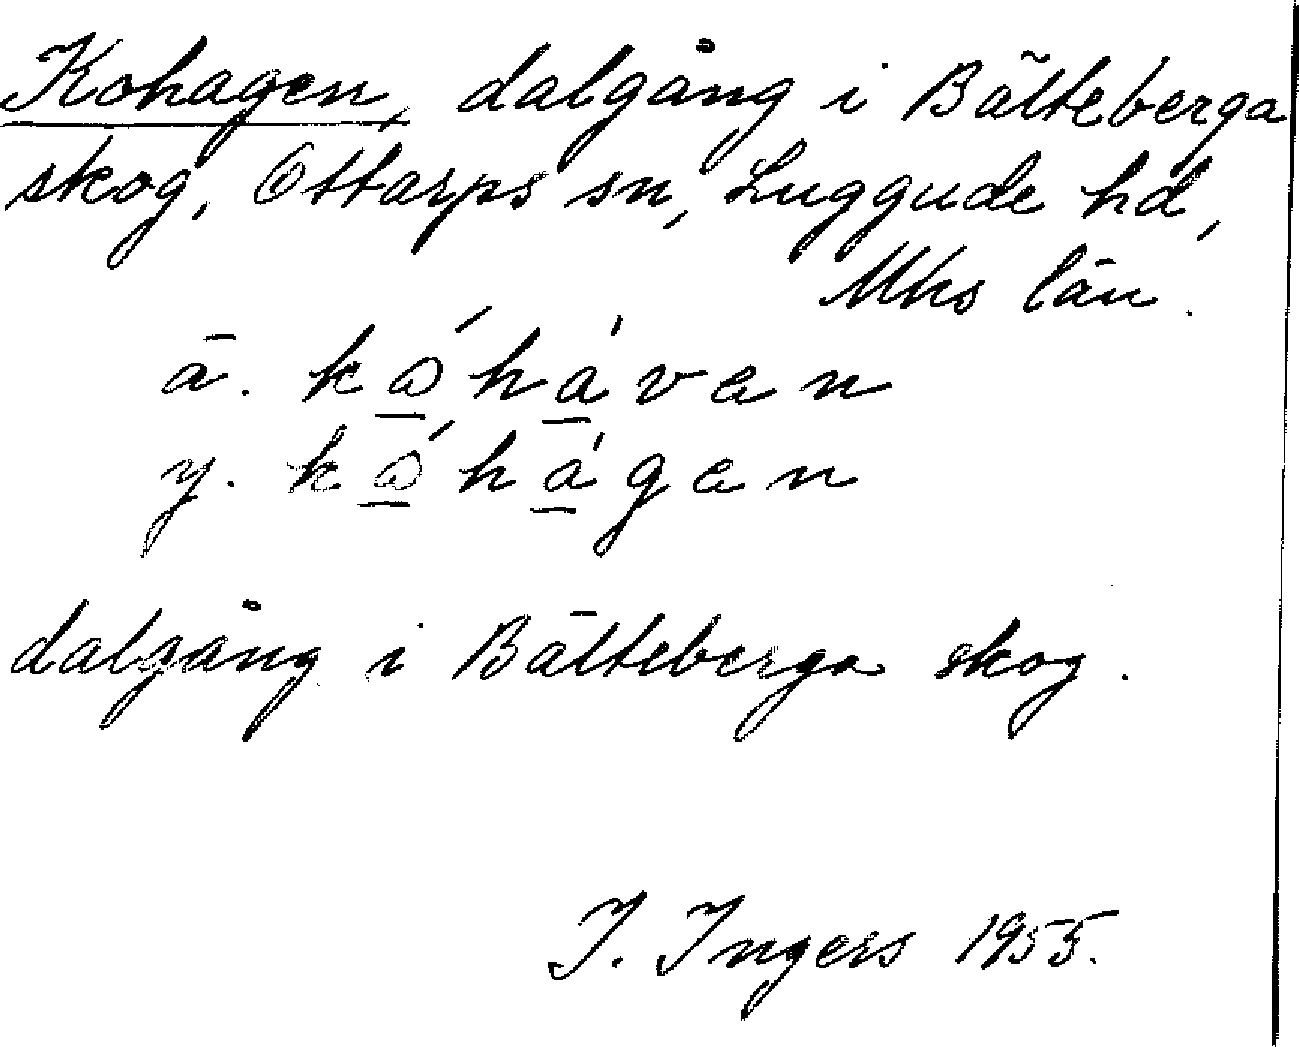 Kohagen, dalgång i Bälteberga
skog, Ottarps sn, Luggude hd,
Mhs län.
ä. kǫ́hávan
y. kǫ́hágan
dalgång i Bälteberga skog.
I. Ingers 1955.